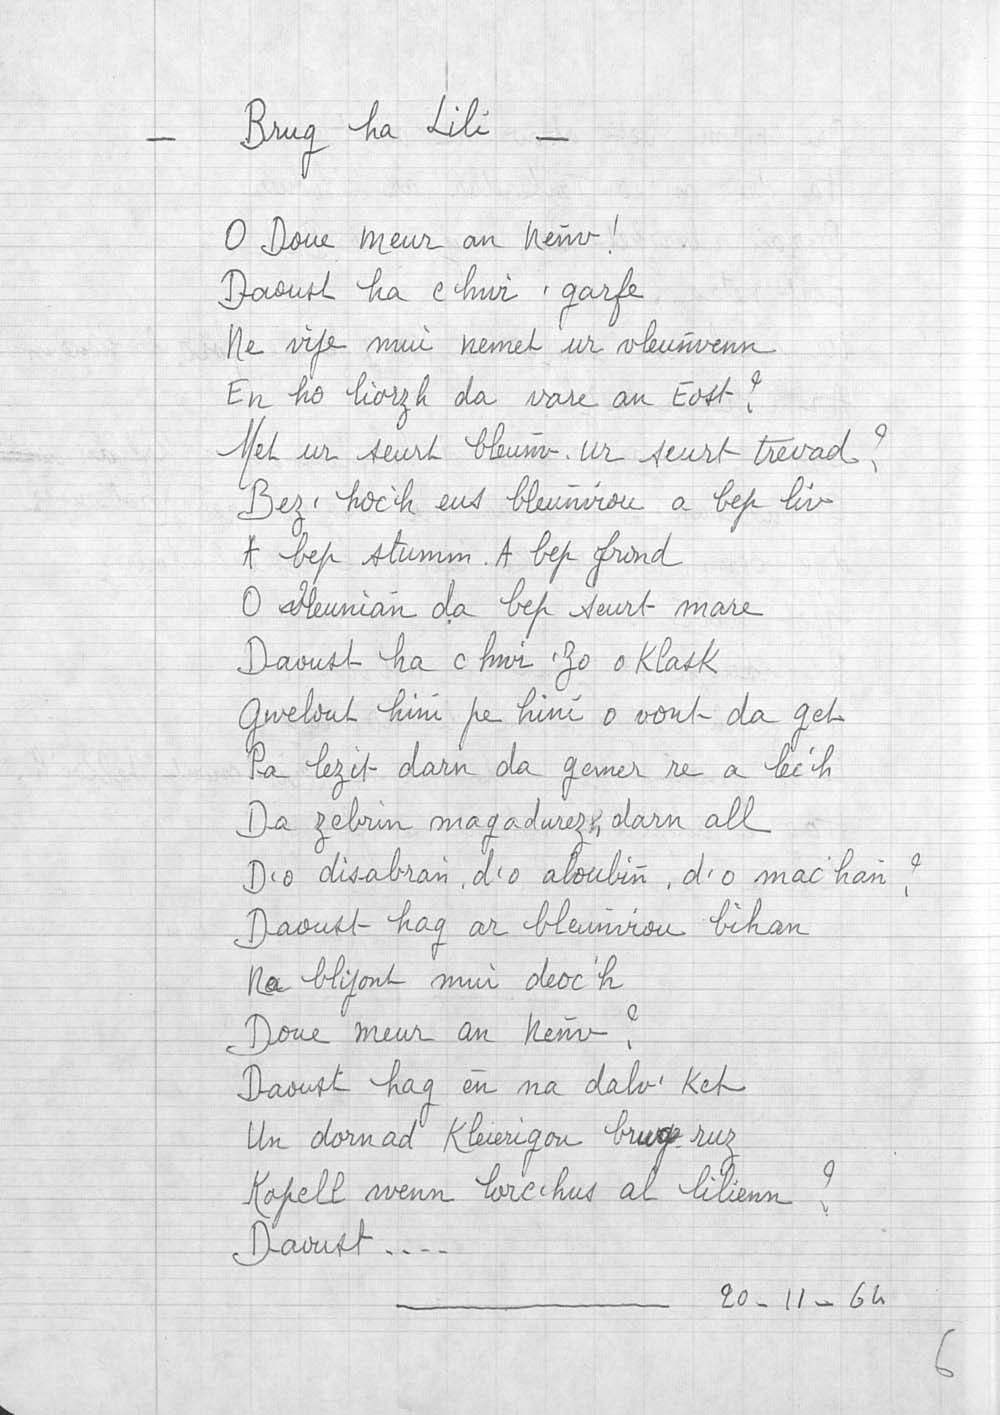 — Brug ha Lili —
O Doue meur an Neñv!
Daoust ha c'hwi 'garfe
Ne vije mui nemet ur vleuñvenn
En ho liorzh da vare an Eost?
Met ur seurt bleuñv. Ur seurt trevad?
Bez' hoc'h eus bleuñviou a bep liv
A bep stumm. A bep frond
O vleuniañ da bep seurt mare
Daoust ha c'hwi 'zo o Klask
Gwelout hini pe hini o vont da get
Pa lezit darn da gemer re a lec'h
Da zebriñ magadurezh darn all
D'o disabrañ, d'o aloubiñ, d'o mac'hañ?
Daoust hag ar bleuñviou bihan
Na blijont mui deoc'h
Doue meur an Neñv?
Daoust hag eñ na dalv' Ket
Un dornad Kleierigou brug ruz
Kopell wenn lorc'hus al lilienn?
Daoust ....
20-11-64
6